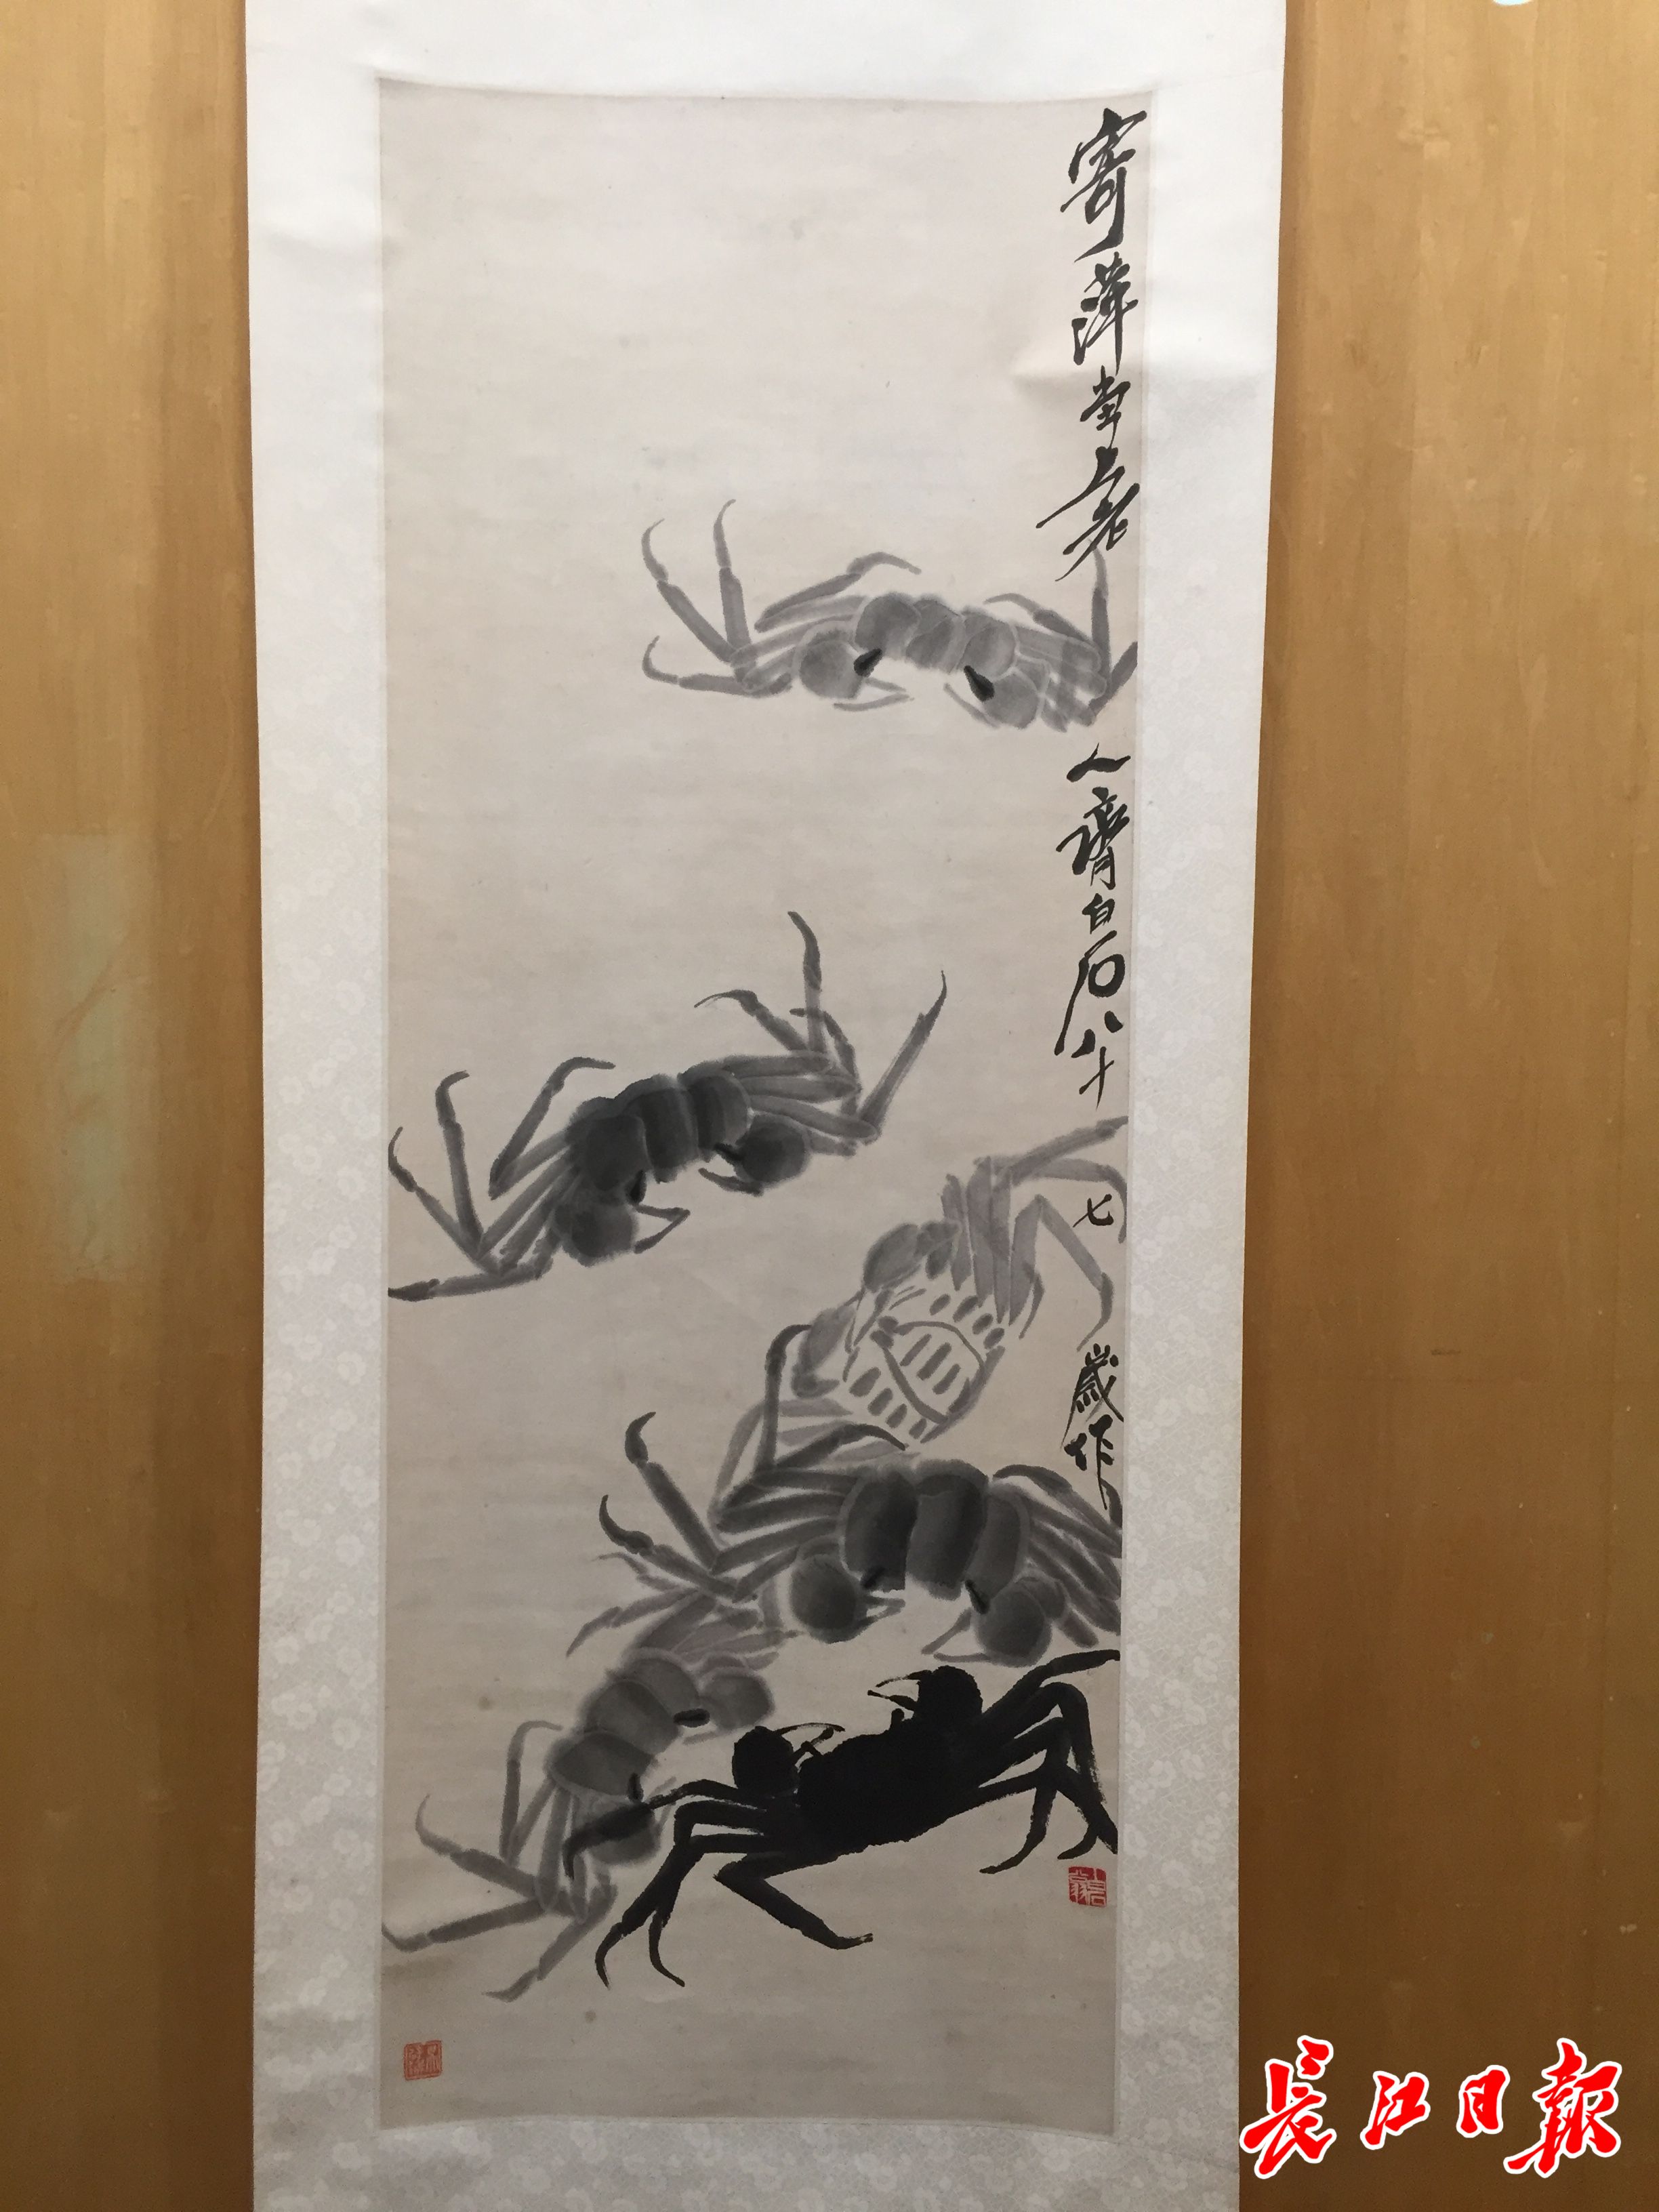 寄萍堂上老人齊白石八十七歲作
長江日報